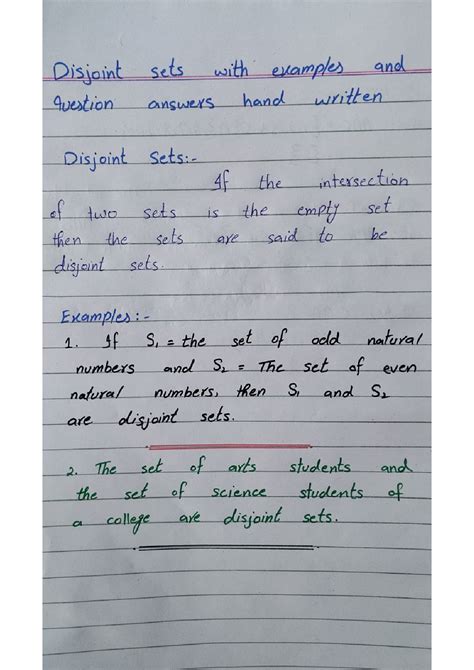 Disjoint sets with examples and
question answers hand written
Disjoint Sets:-
If the intersection
of two sets is the empty set
then the sets are said to be
disjoint sets.
Examples:-
1. If S₁ = the set of odd natural
numbers and S₂ = The set of even
natural numbers, then S₁ and S₂
are disjoint sets.
2. The set of arts students and
the set of science students of
a college are disjoint sets.